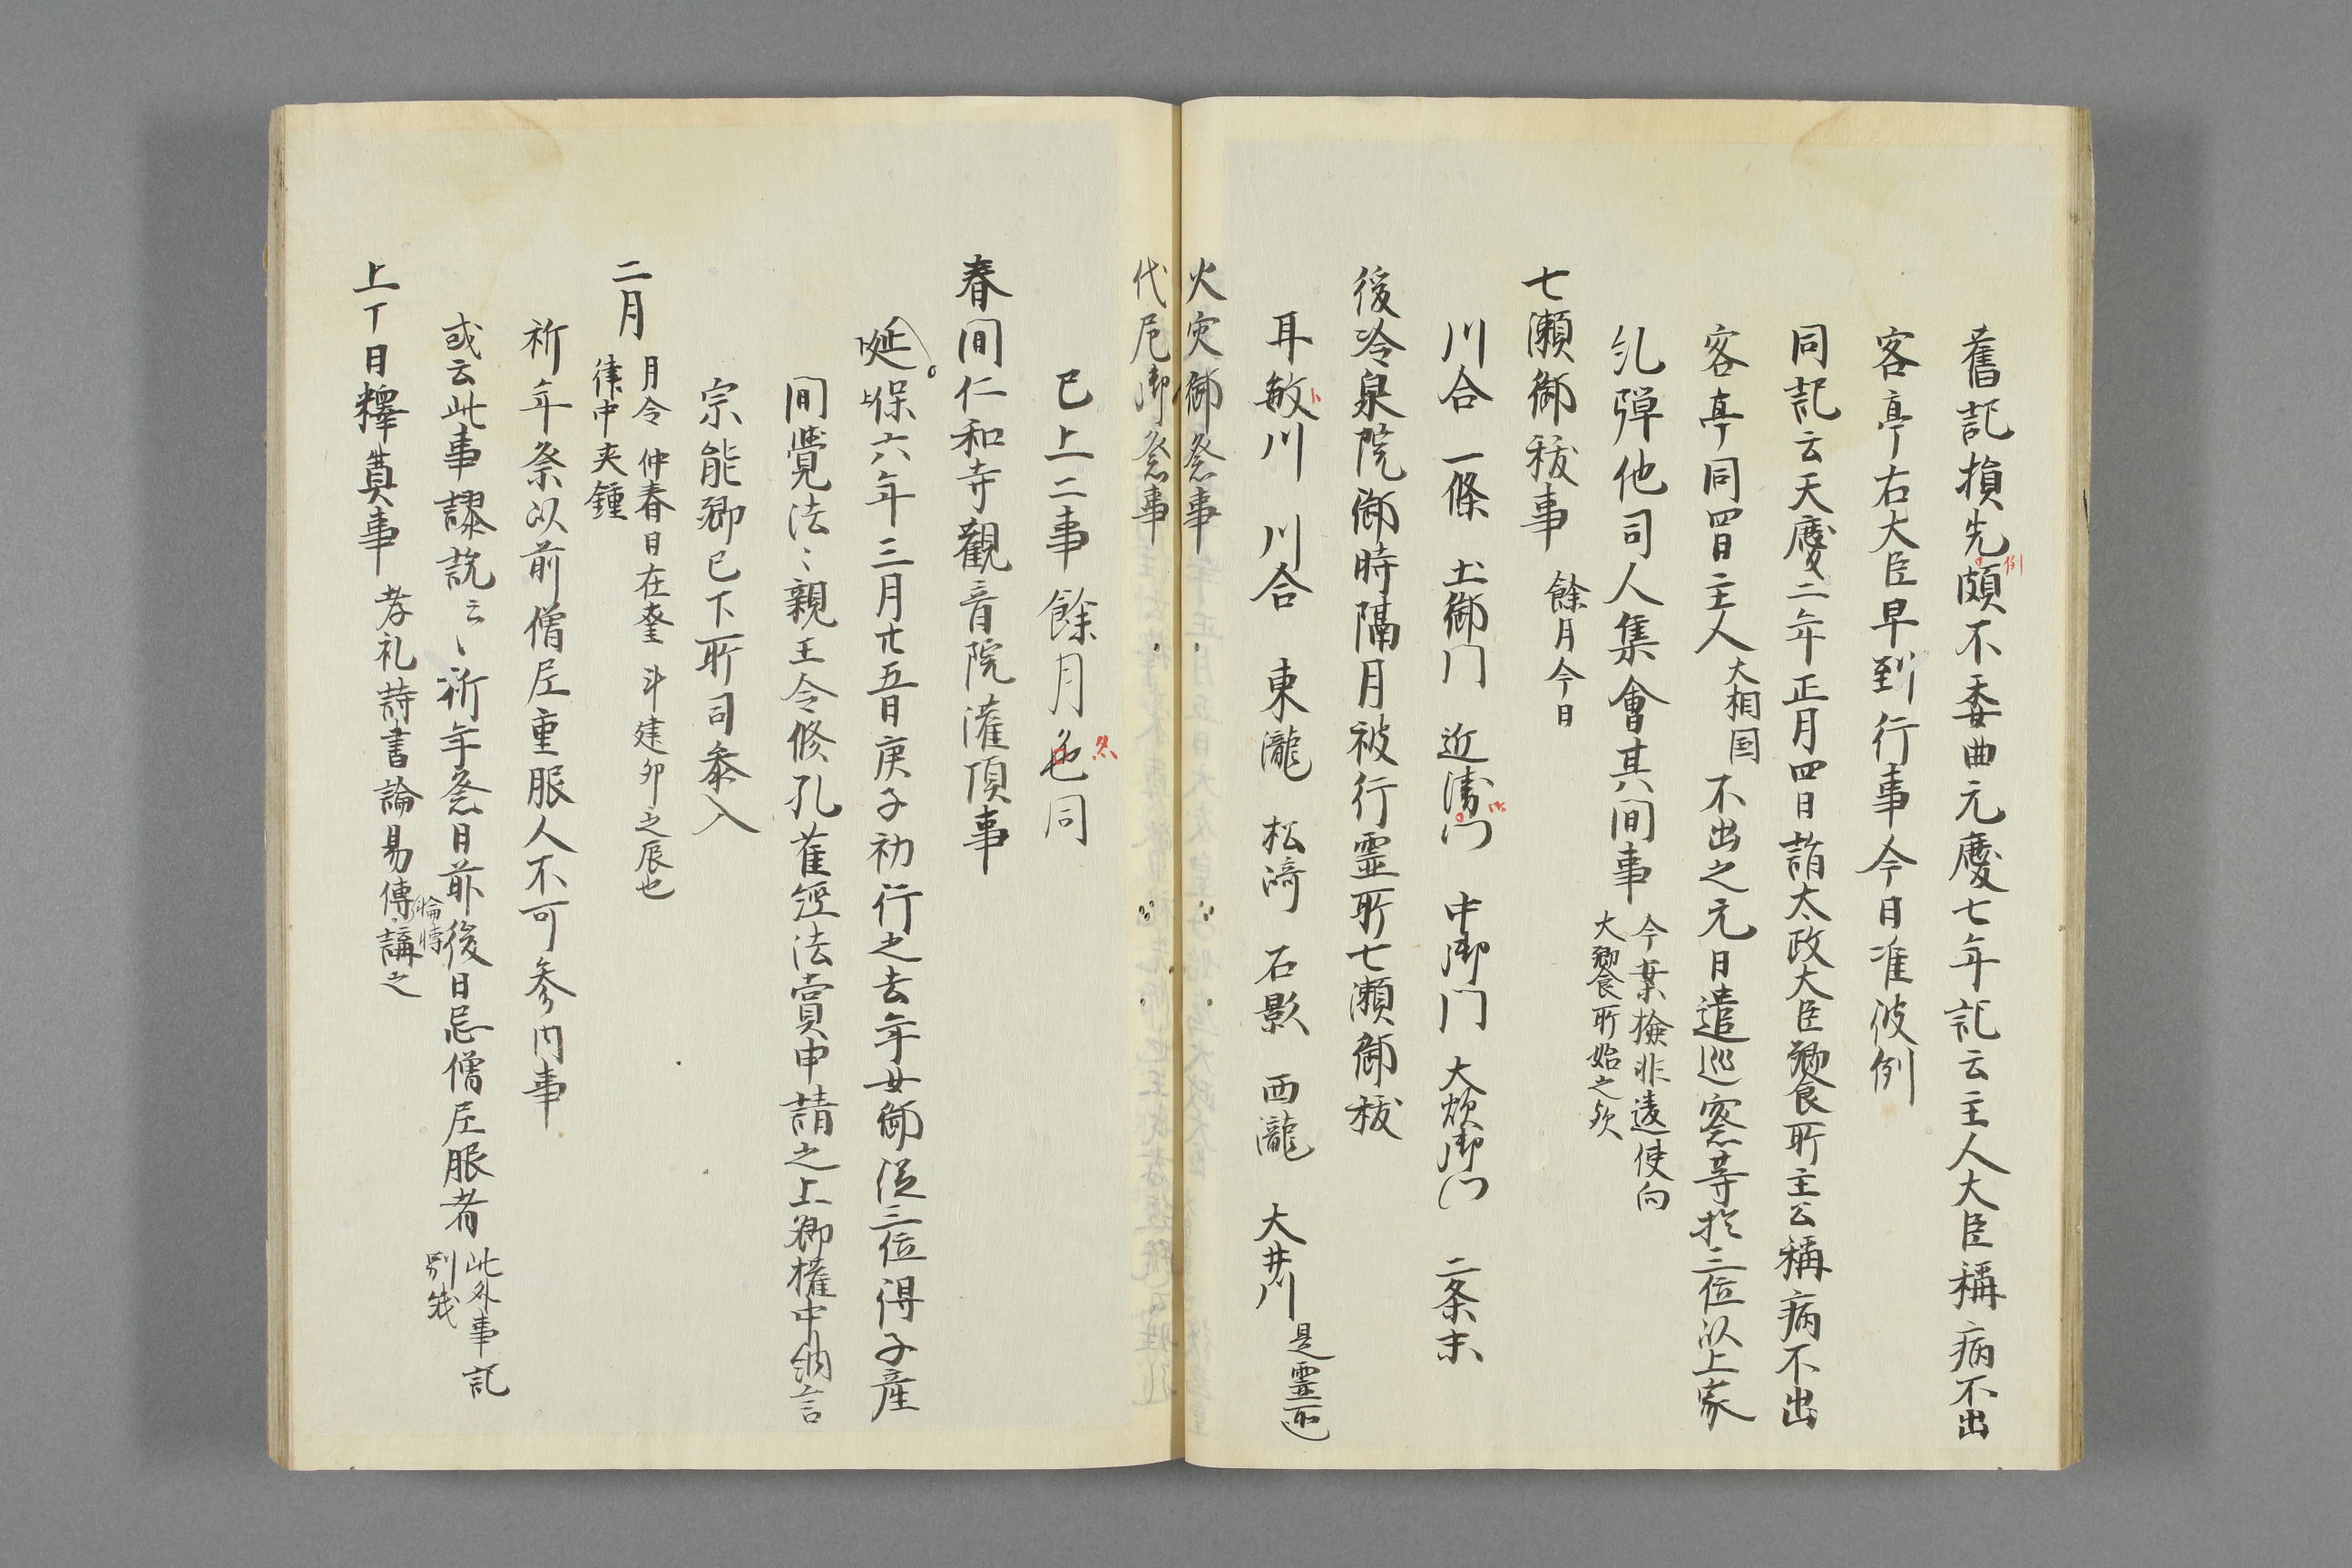 舊記損先頗不委曲元慶七年記云主人大臣稱病不出
例
客亭右大臣早到行事今日准彼例
同記云天慶二年正月四日詣太政大臣饗所主公稱病不出
客亭同四日主人大相国不出之元日遣巡察等於三位以上家
糺彈他司人集會其間事
今案檢非違使向
大饗所始之欤
七瀬御祓事 餘月今日
川合 一條 土御门 近衛门 中御门 大炊御门 二条末
後冷泉院御時隔月被行霊所七瀬御祓
耳敏川 川合 東瀧 松﨑 石影 西瀧 大井川 是霊所也
火灾御祭事
代厄御祭事
已上二事餘月也同
春間仁和寺觀音院灌頂事
延保六年三月廿五日庚子初行之去年女御従三位得子産
間覺法〻親王令修孔雀經法賞申請之上卿權中納言
宗能卿已下所司参入
二月
月令 仲春日在奎 斗建卯之辰也
律中夾鍾
祈年祭以前僧尼重服人不可参内事
或云此事謬説云〻祈年祭日前後日忌僧尼服者
此外事記
別紙
上丁日釋奠事 孝礼詩書論易傳〻講之